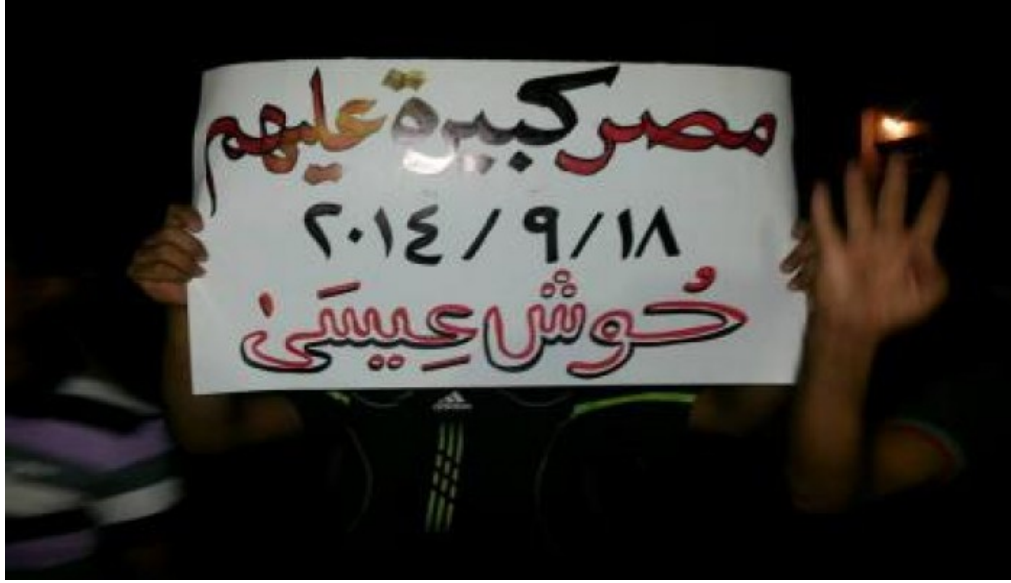 مصر كبيرة عليهم
٢٠١٤/٩/١٨
حُوش عِيسَىٰ
adidas